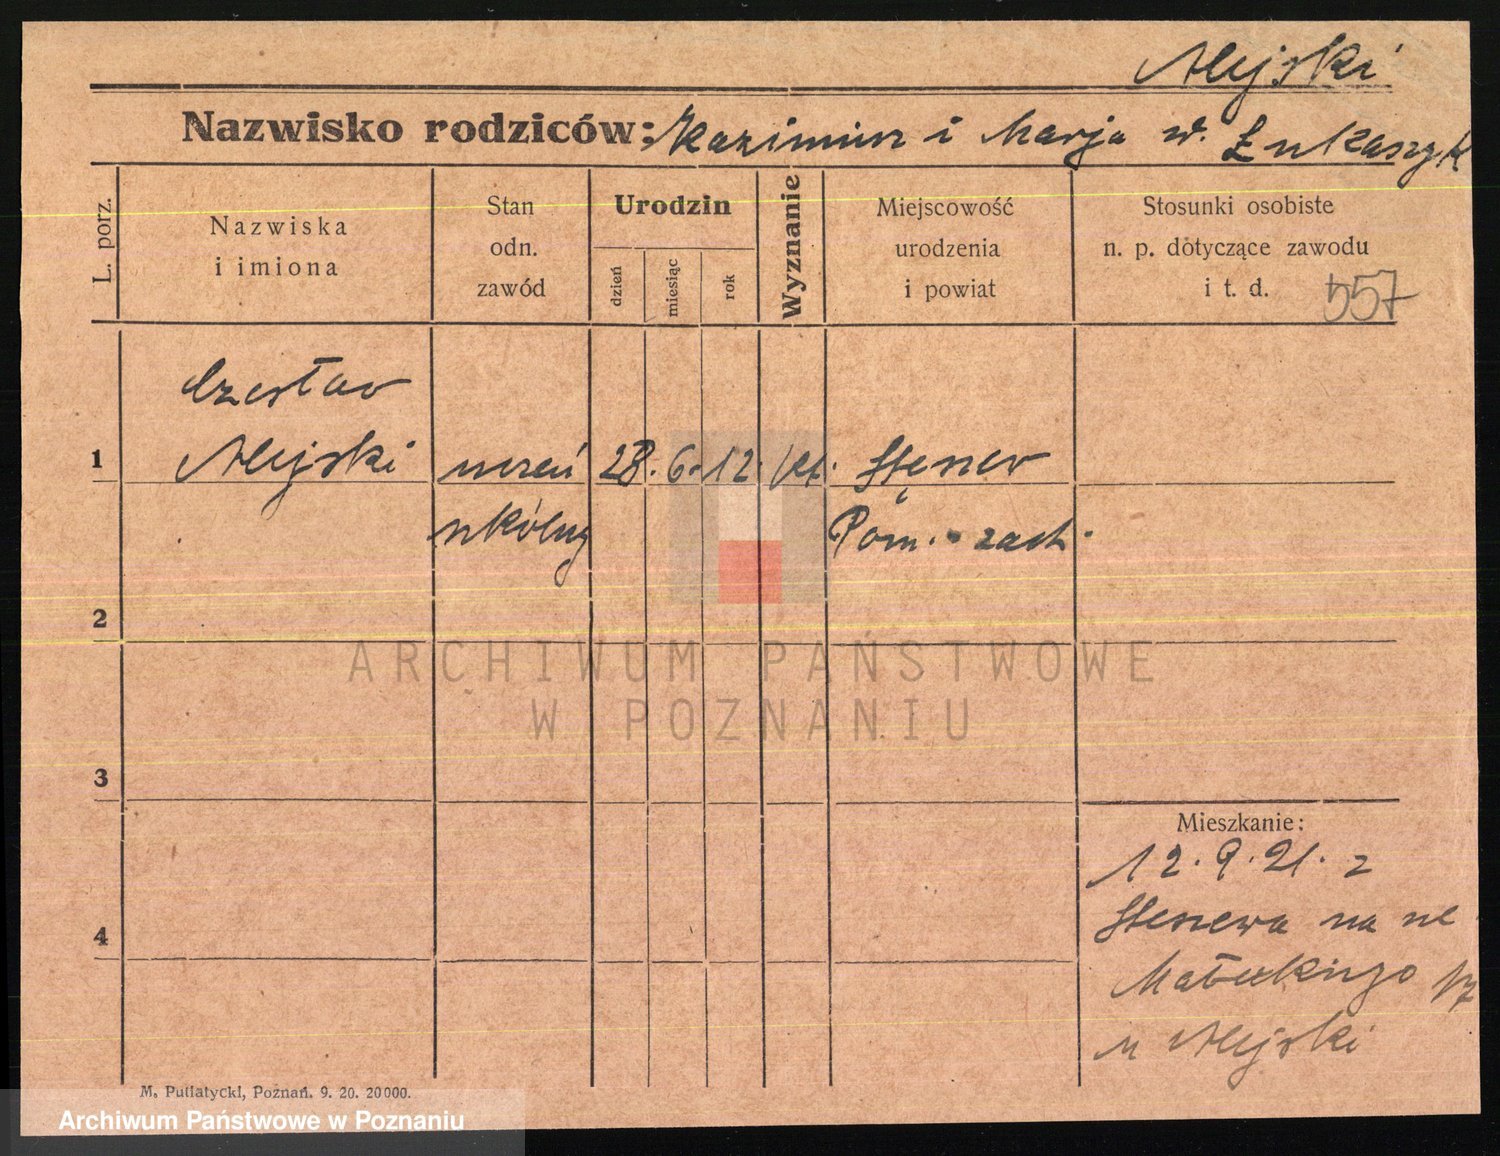 Alejski
Nazwisko rodziców: Kazimierz i Marja z d. Łukaszyk
L. porz.
Nazwiska
i imiona
Stan
odn.
zawód
Urodzin
dzień
miesiąc
rok
Wyznanie
Miejscowość
urodzenia
i powiat
Stosunki osobiste
n. p. dotyczące zawodu
i t. d.
557
Czesław
1 Alejski uczeń 28. 6. 12. kt. Stęszew
szkólny Pozn. - zach.
2
3
4
Mieszkanie:
12. 9. 21. z
Stęszewa na ul
Małeckiego 17
u Alejski
M. Putiatycki, Poznań. 9. 20. 20000.
ARCHIWUM PAŃSTWOWE
W POZNANIU
Archiwum Państwowe w Poznaniu